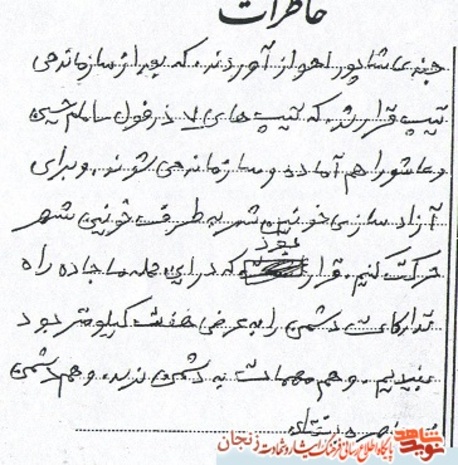 خاطرات
جبهه عاشا پور اهواز آوردند. که بعد از سازماندهی
تیپ قرار شد که تیپ های ۷ دزفول و امام حسین
و عاشورا هم آماده و سازماندهی شوند. و برای
آزاد سازی خونین شهر به طرف خونین شهر
حرکت کنیم. قرار بود که در این حمله ما جاده راه
تدارکاتی دشمن را به عرض هفت کیلومتر بود
ببندیم. و هم مهمات به دشمن نرسد. و هم دشمن
نوید شاهد
پایگاه اطلاع رسانی فرهنگ ایثار و شهادت زنجان